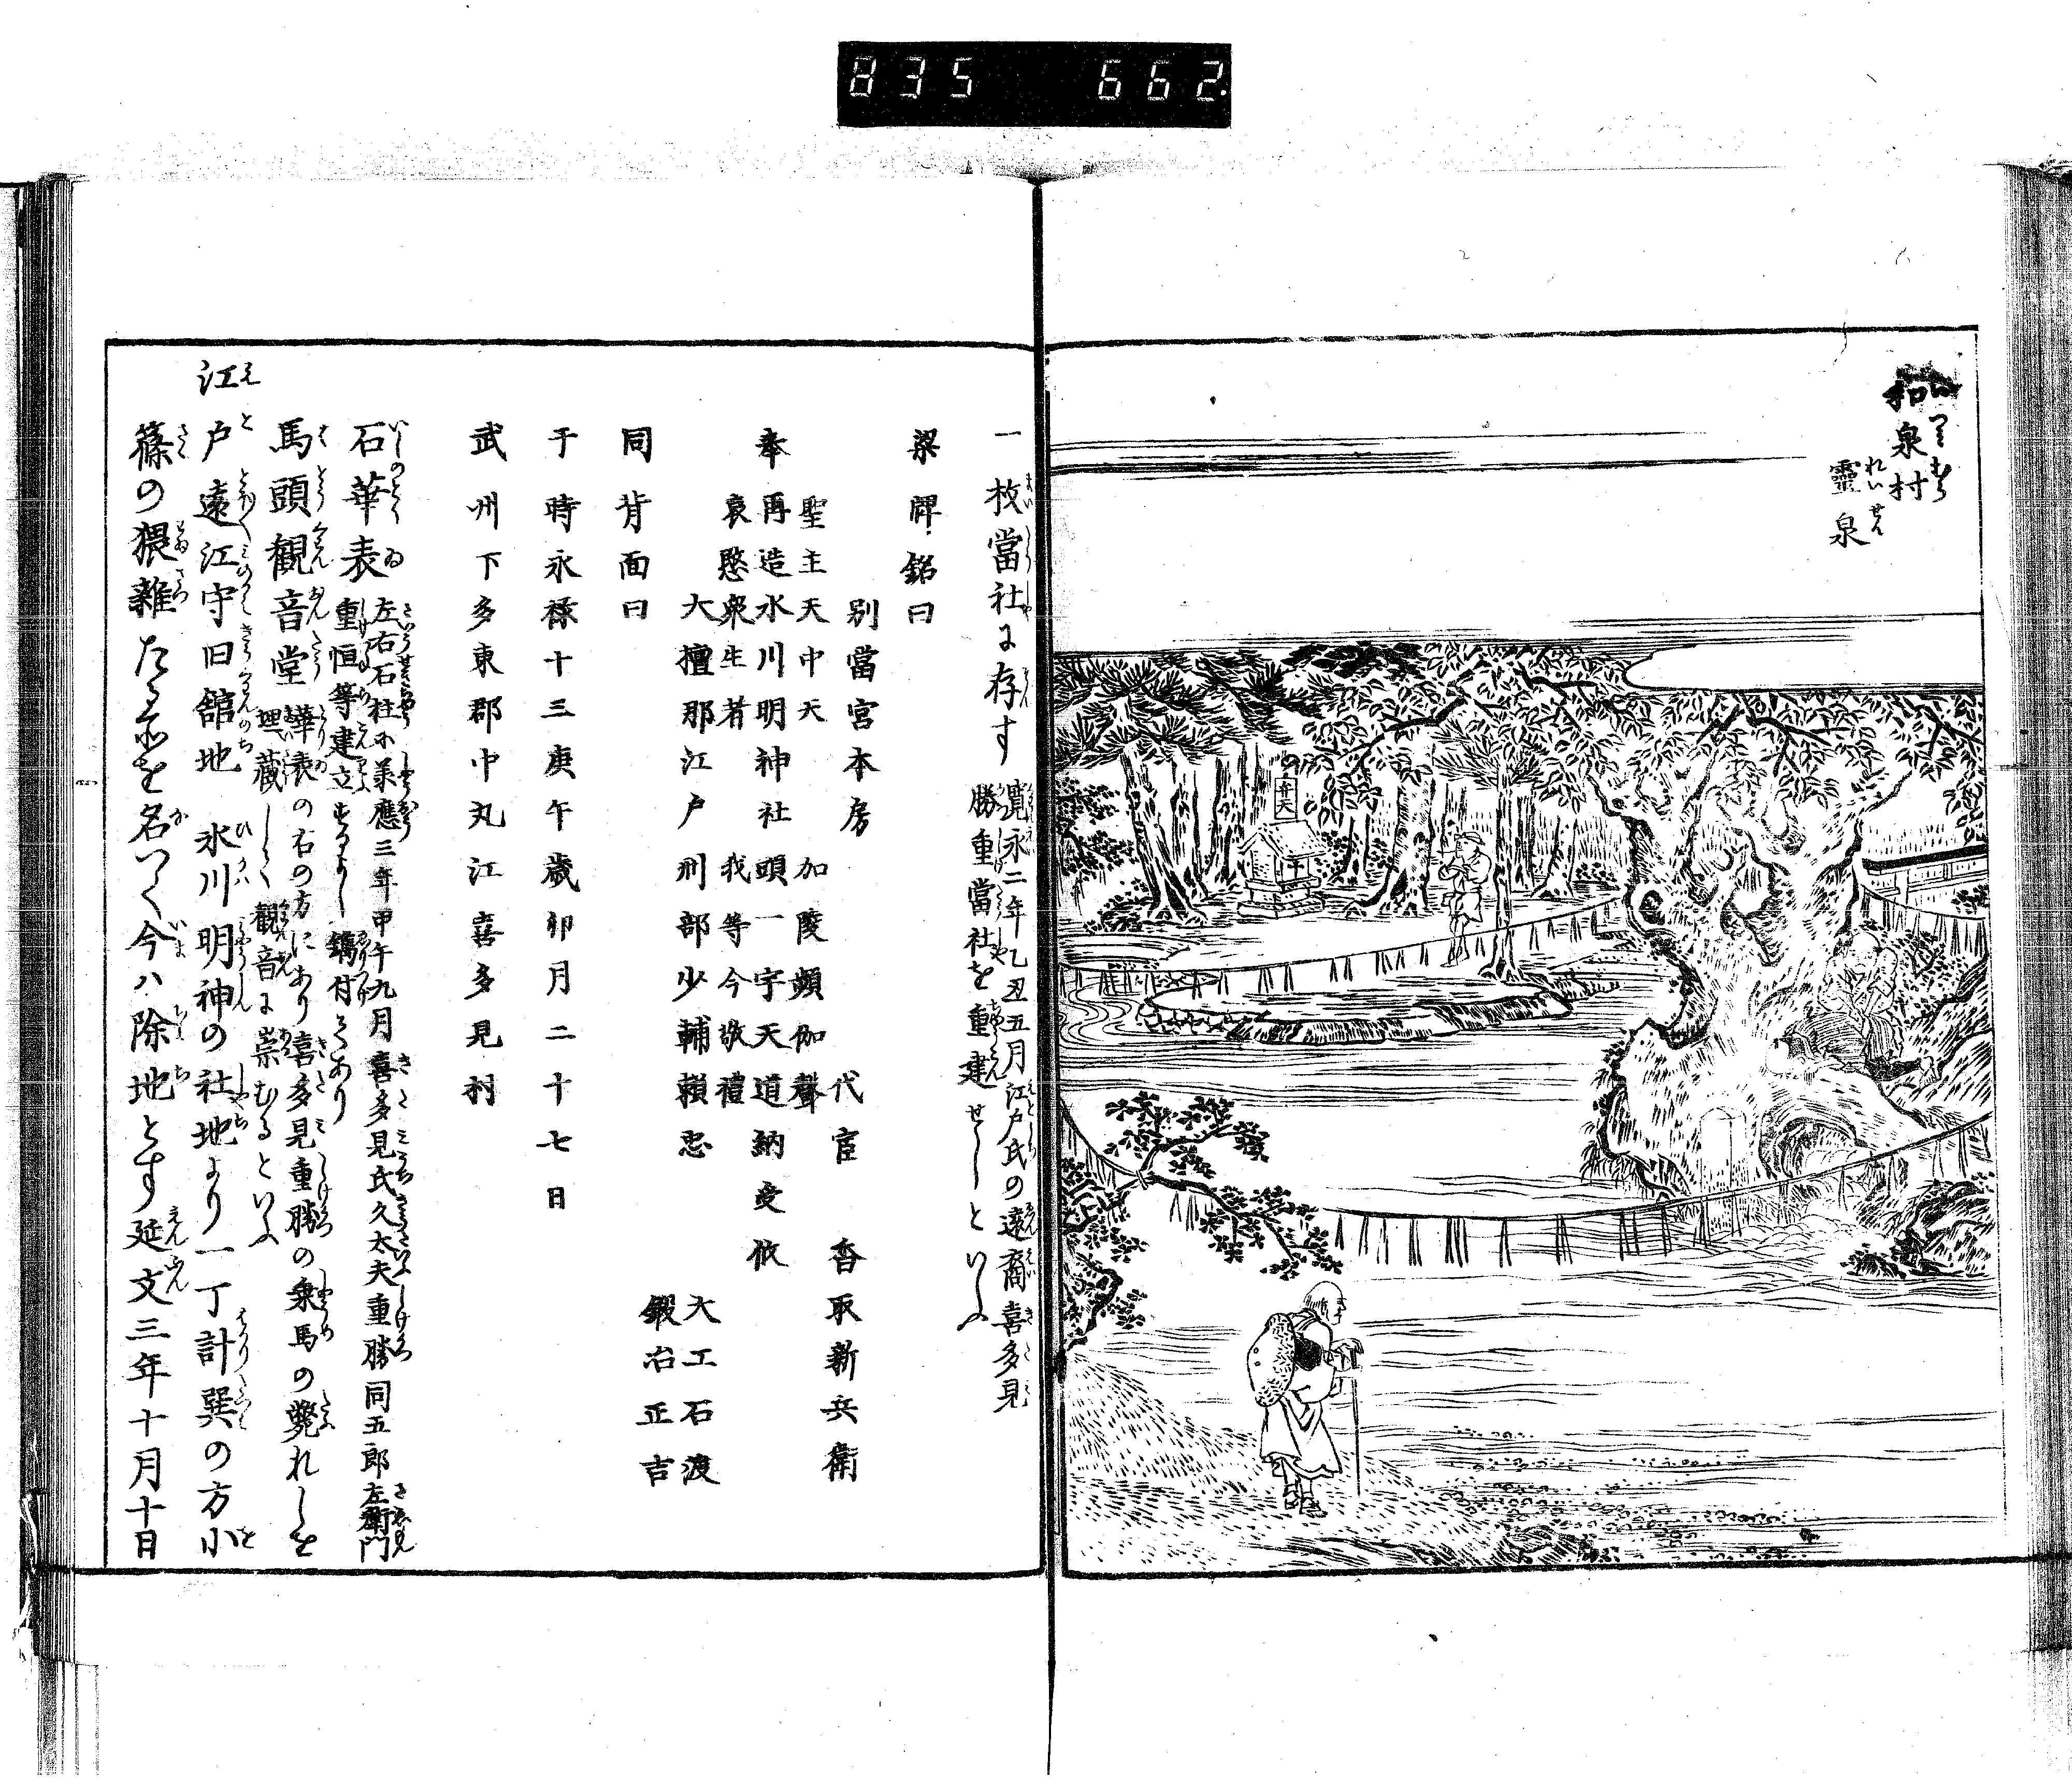 835 662
和泉村
いづみむら
靈泉
れいせん
弁天
一枚當社に存す
寛永二年乙丑五月江戸氏の遠裔喜多見
勝重當社を重建せしといふ
梁牌銘曰
別當宮本房 代官 香取新兵衛
聖主天中天 加陵頻伽聲
奉再造氷川明神社頭一宇天天道納受攸
哀愍衆生者 我等今敬禮
大檀那江戸刑部少輔頼忠
大工石渡
鍛冶正吉
同背面曰
于時永祿十三庚午歳卯月二十七日
武州下多東郡中丸江喜多見村
石華表
左右石柱に承應三年甲午九月喜多見氏久太夫重勝同五郎左衛門
重恒等建立するよし鐫付てあり
馬頭観音堂
華表の右の方にあり喜多見重勝の乗馬の斃れしを
埋蔵しく観音に崇むるといふ
江戸遠江守旧舘地 氷川明神の社地より一丁計巽の方小
篠の猥雜たる所を名つく今ハ除地とす延文三年十月十日